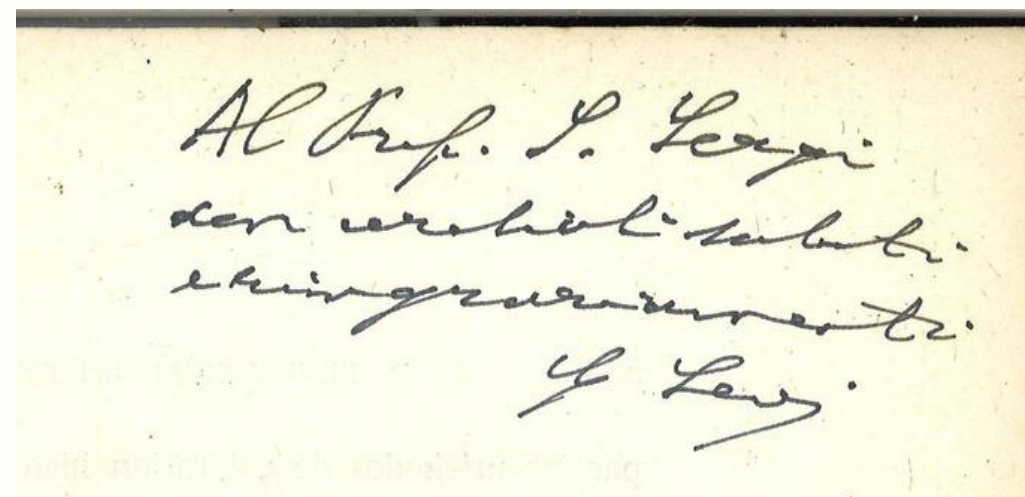 Al Prof. S. Sergi
con cordiali saluti
e ringraziamenti
G Levi